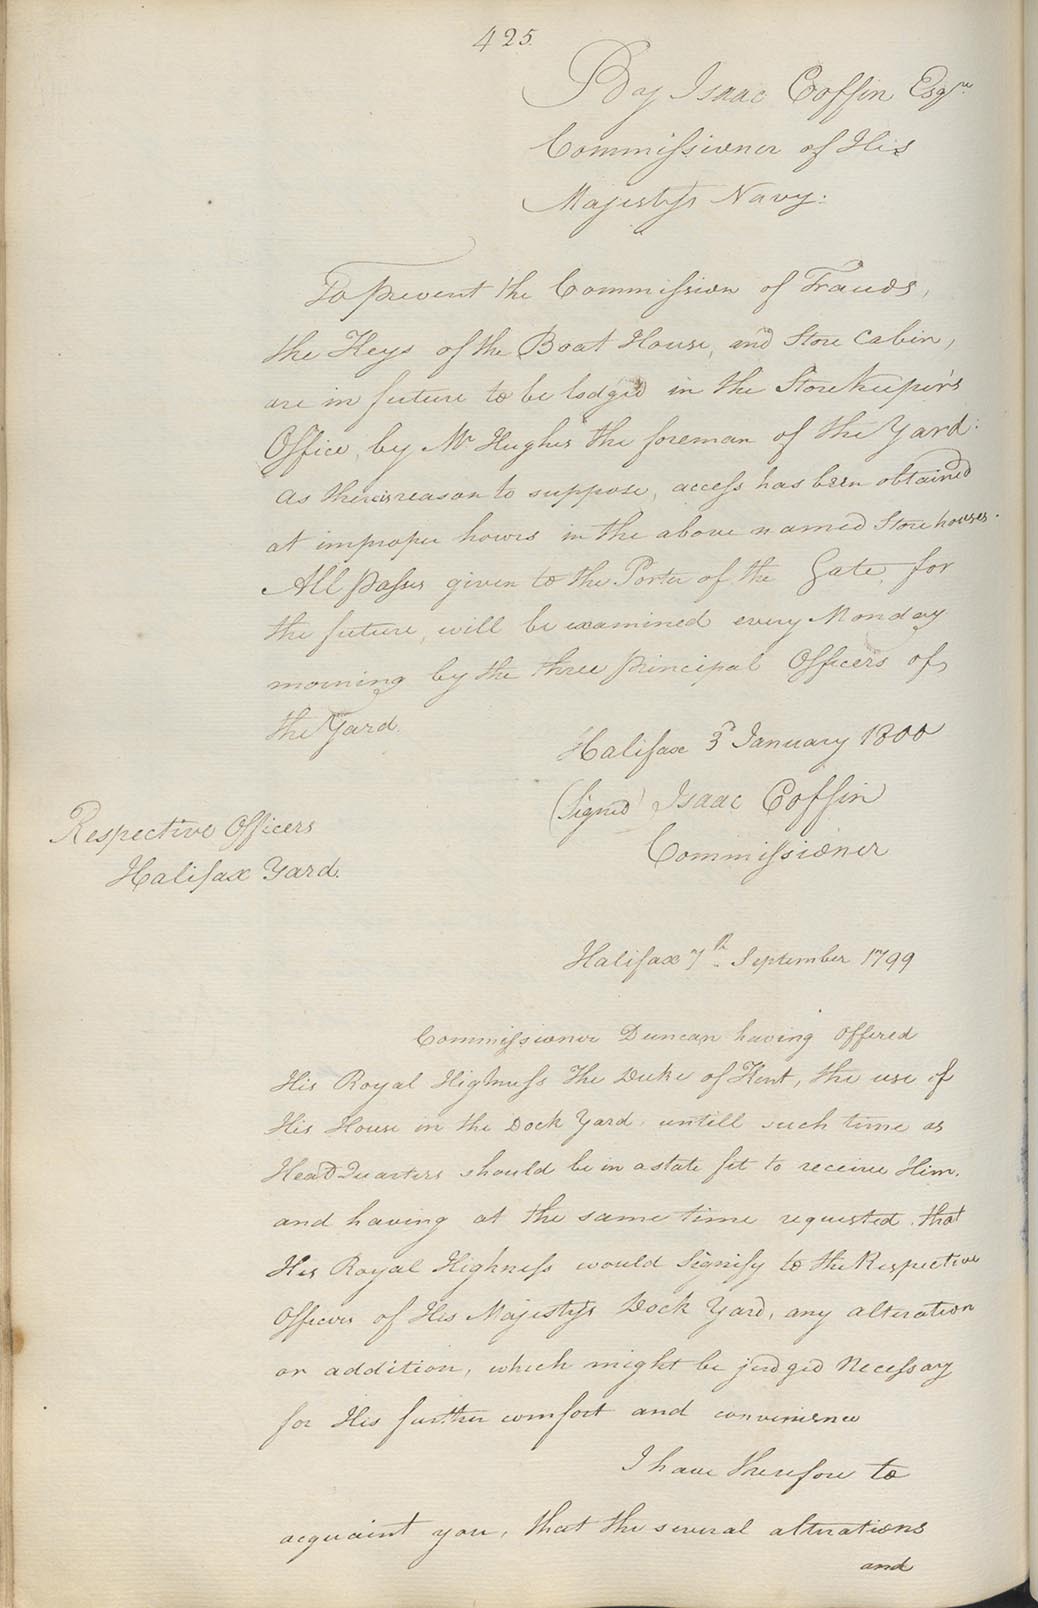 425
By Isaac Coffin Esqre
Commissioner of His
Majestys Navy:
To prevent the Commission of Frauds,
the Keys of the Boat House, and Store Cabin,
are in future to be lodged in the StoreKeeper's
Office, by Mr Hughes the foreman of the Yard:
as there is reason to suppose, access has been obtained
at improper hours in the above named Store houses.
All passes given to the Porter of the Gate, for
the future, will be examined every Monday
morning by the three Principal Officers of
the Yard.
Halifax 3d January 1800
(Signed) Isaac Coffin
Commissioner
Respective Officers
Halifax Yard.
Halifax 7th September 1799
Commissioner Duncan having Offered
His Royal Highness The Duke of Kent, the use of
His House in the Dock Yard, untill such time as
Head Quarters should be in a state fit to receive Him,
and having at the same time requested, that
His Royal Highness would Signify to the Respective
Officers of His Majestys Dock Yard, any alteration
or addition, which might be judged Necessary
for His further comfort and convenience
I have therefore to
acquaint you, that the several alterations
and